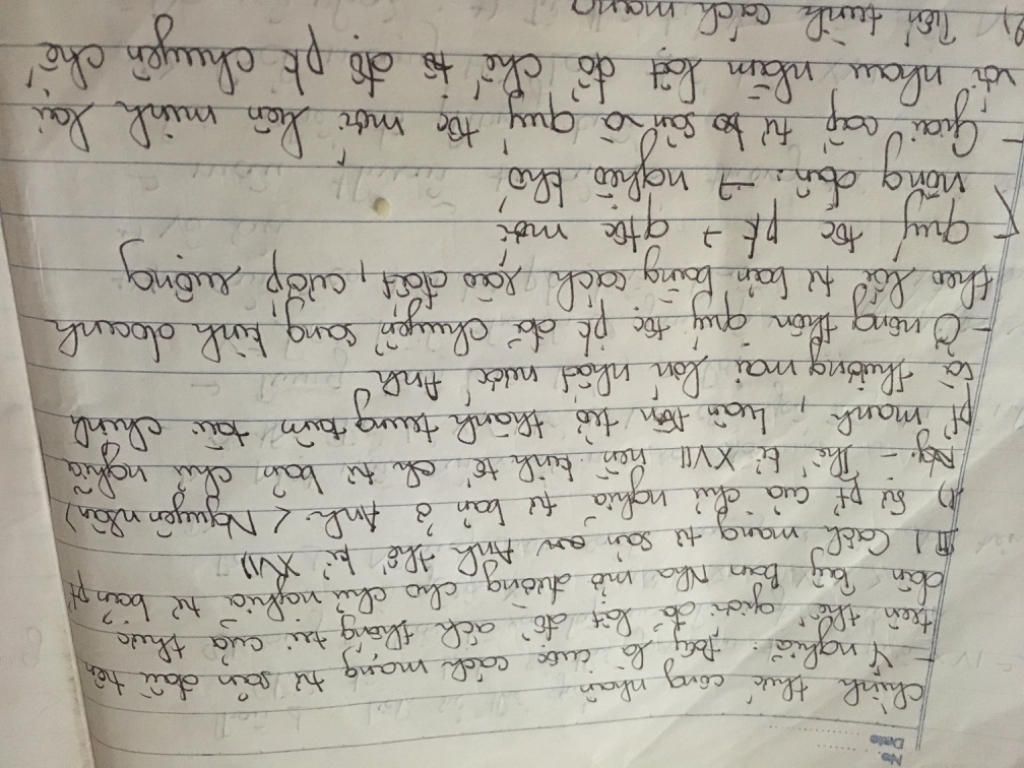 No.
Date
chính thức công nhận
- Ý nghĩa: Đây là cuộc cách mạng tư sản đầu tiên
trên thế giới đã lật đổ ách thống trị của thực
dân Tây Ban Nha mở đường cho chủ nghĩa tư bản pt
III) Cách mạng tư sản an Anh thế kỉ XVII
1) Sự pt của chủ nghĩa tư bản ở Anh. < Nguyên nhân)
- Thế kỉ XVII nền kinh tế ch tư bản chủ nghĩa
pt mạnh, Luân Đôn trở thành trung tâm tài chính
và thương mại lớn nhất nước Anh
- Ở nông thôn quý tộc pk đã chuyển sang kinh doanh
theo lối tư bản bằng cách rào đất, cướp ruộng
quý tộc pk → qtộc mới
nông dân: → nghèo khổ
- Giai cấp tư sản và quý tộc mới liên minh lại
với nhau nhằm lật đổ chế độ pk chuyên chế
2) Tiến trình cách mạng